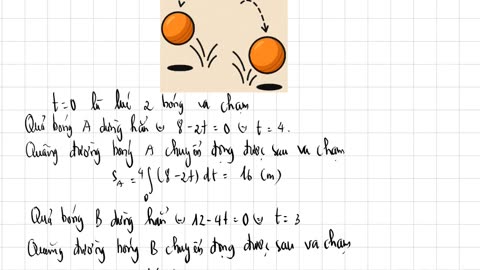 t=0 là lúc 2 bóng va chạm
Quả bóng A dừng hẳn ⇔ 8-2t=0 ⇔ t=4.
Quãng đường bóng A chuyển động được sau va chạm
S_A = ∫₀⁴ (8-2t) dt = 16 (m)
Quả bóng B dừng hẳn ⇔ 12-4t=0 ⇔ t=3
Quãng đường bóng B chuyển động được sau va chạm